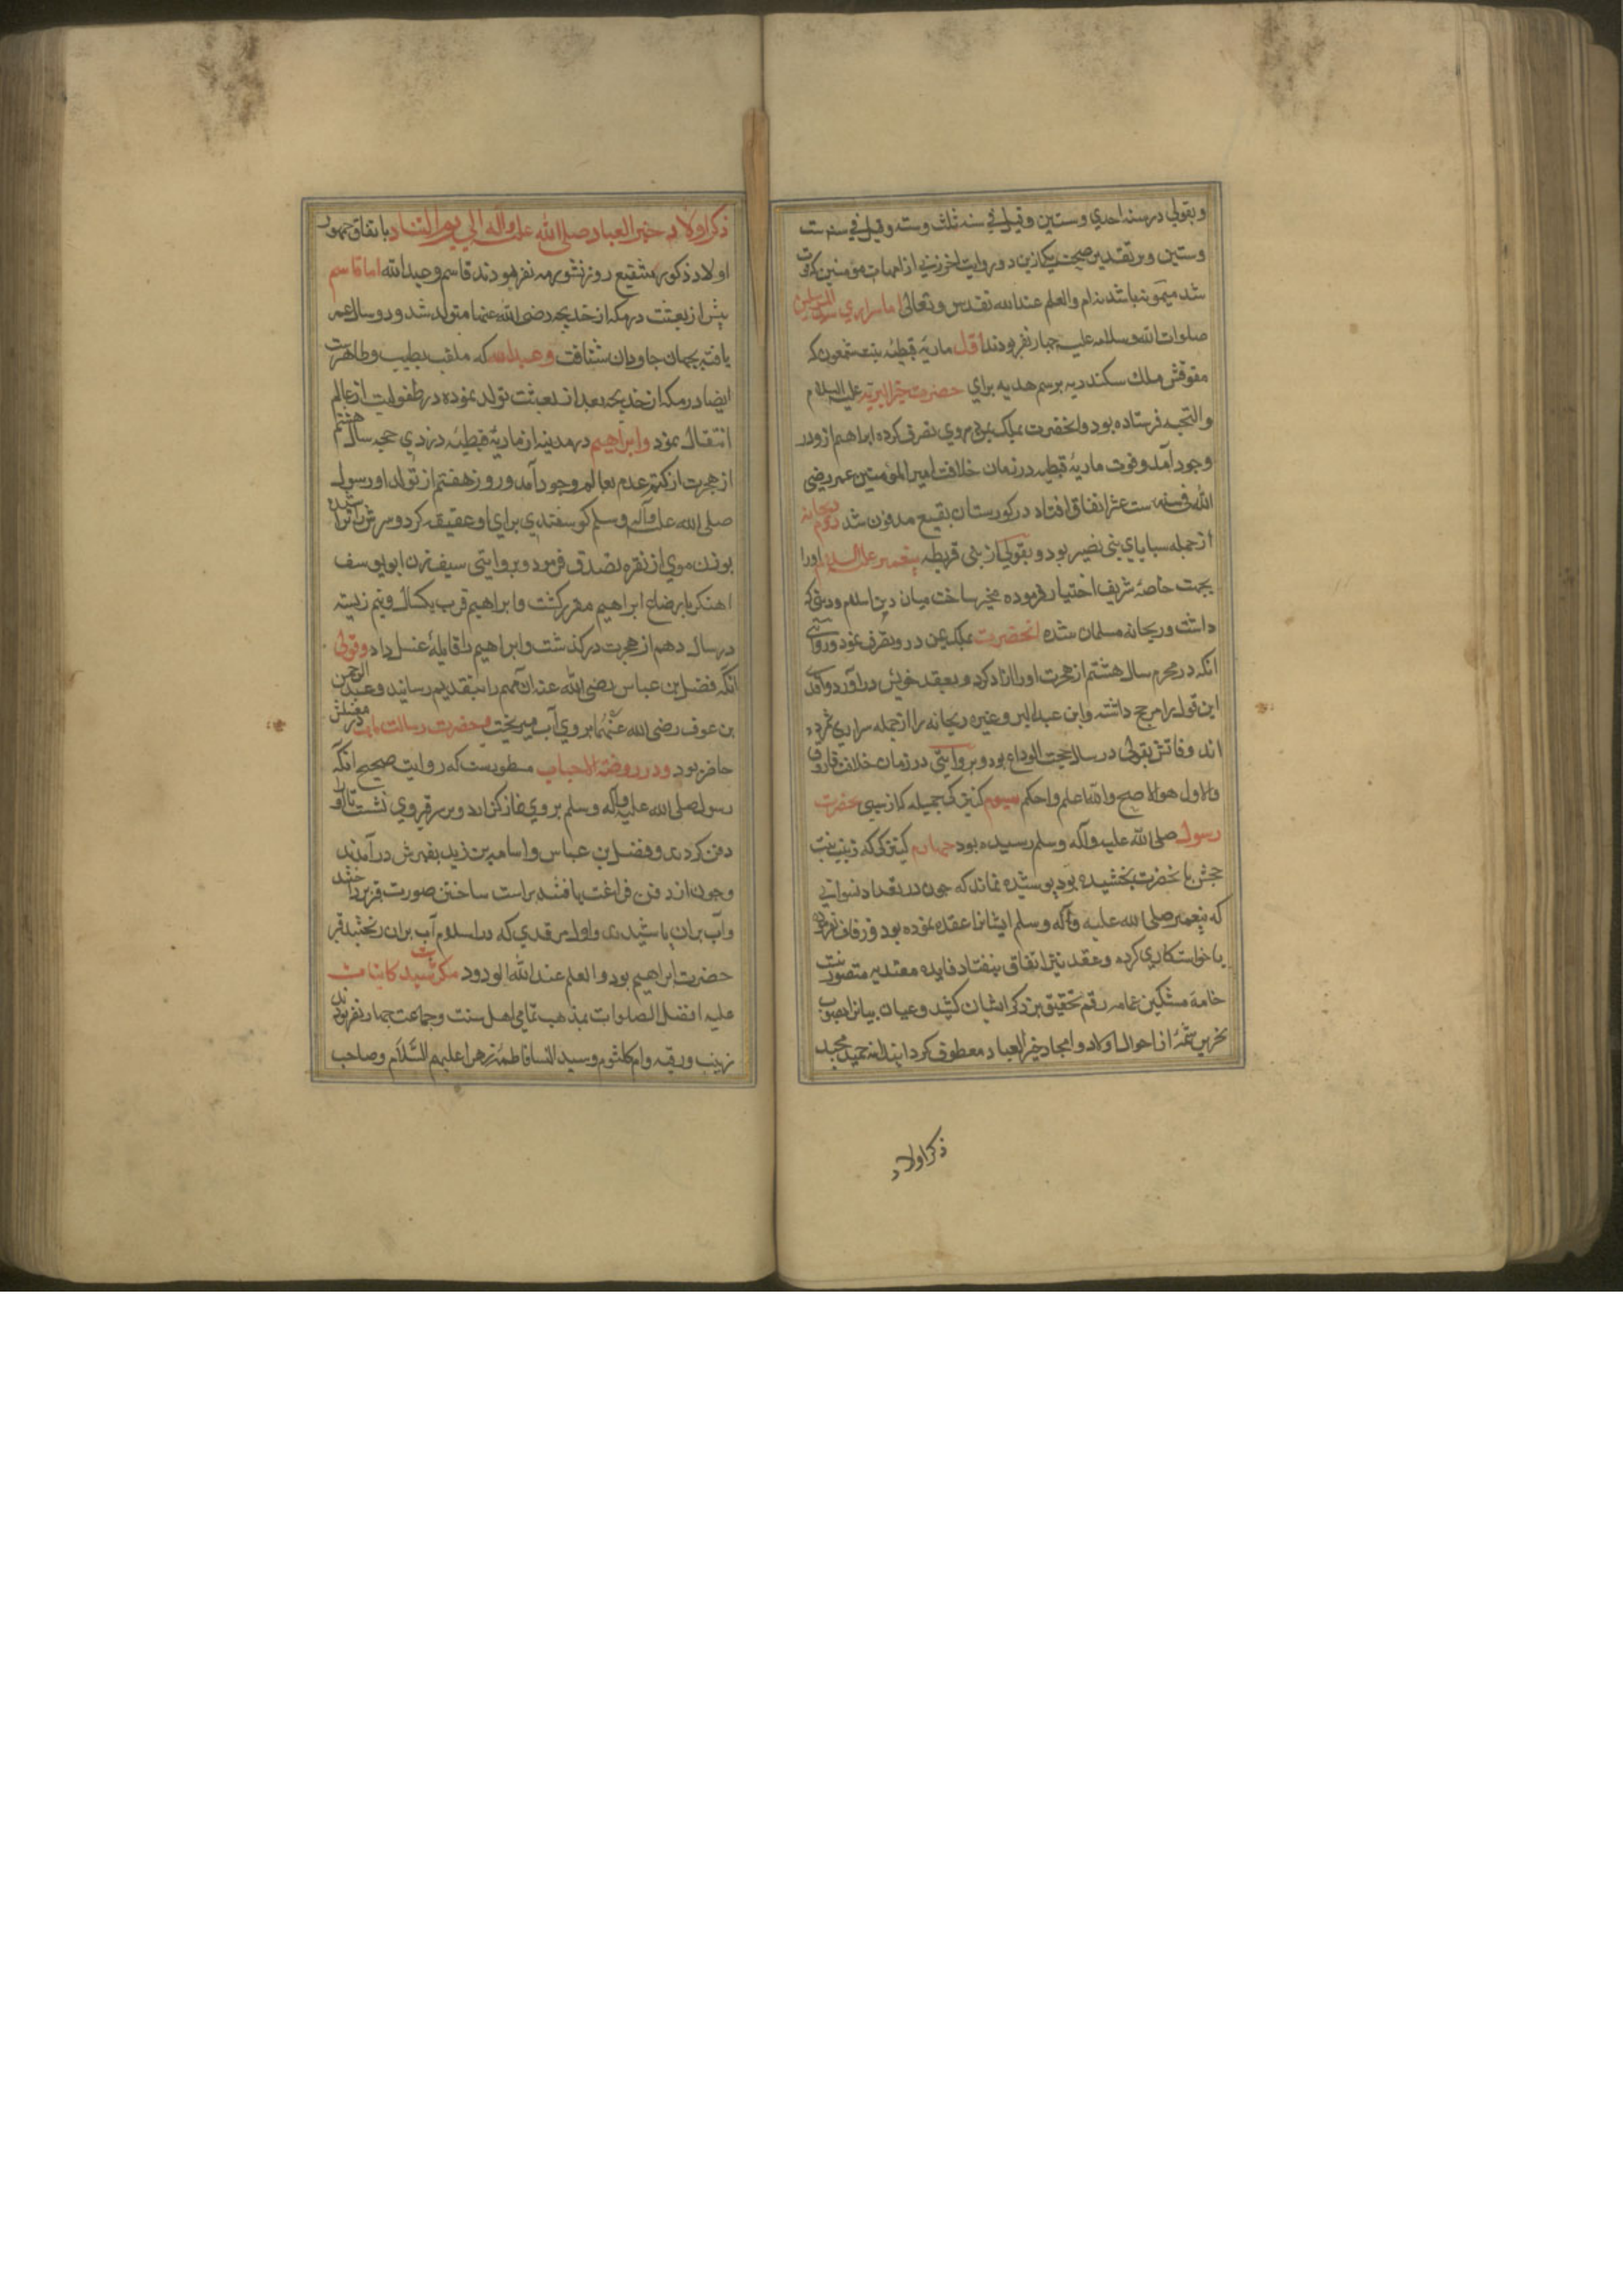 و بقولی در سنه احدی و ستین و قیل فی سنه ثلث و سته و قیل فی سنه ست
و ستین و بر تقدیر صحت یکی ازین دو روایت اخر زنی از امهات مؤمنین که فوت
شد میمونه باشد نه ام والعلم عند الله تقدس و تعالی اما سراری سید المرسلین
صلوات الله و سلامه علیه چهار نفر بودند اول ماریه قبطیه بنت شمعون که
مقوقش ملک سکندریه برسم هدیه برای حضرت خیر البریه علیه السلام
والتحیه فرستاده بود و انحضرت بملک یمین بروی تصرف کرده ابراهیم ازو در
وجود آمد و فوت ماریه قبطیه در زمان خلافت امیر المؤمنین عمر رضی
الله فی سنه ست عشر اتفاق افتاد در کورستان بقیع مدفون شد دوم ریحانه
از جمله سبایای بنی نضیر بود و بقولی از بنی قریظه پیغمبر علیه السلام اورا
بجهت خاصه شریف اختیار فرموده مخیر ساخت میان دین اسلام و دینی که
داشت و ریحانه مسلمان شده انحضرت بملک یمین درو تصرف نمود و روایتی
انکه در محرم سال هشتم از هجرت اورا ازاد کرد و بعقد خویش در آورد واقدی
این قول را مرجح داشته و ابن عبد البر و غیره ریحانه را از جمله سراری شمرده
اند و فاتش بقولی در سال حجت الوداع بود و بروایتی در زمان خلافت فاروق
والاول هو الاصح والله اعلم واحکم سیوم کنیزکی جمیله که از سبی بحضرت
رسول صلی الله علیه وآله وسلم رسیده بود چهارم کنیزکی که زینب بنت
جحش بانحضرت بخشیده بود پوشیده نماند که چون در تعداد نسوانی
که پیغمبر صلی الله علیه وآله وسلم ایشانرا عقد نموده بود و زفاف نکرده
یا خواستکاری کرده و عقد نیز اتفاق نیفتاد فایده معتد به متصور نیست
خامه مشکین عمامه رقم تحقیق بر ذکر ایشان کشید و عیان بیانرا بصوب
تحریر شمه از احوال اولاد و امجاد خیر العباد معطوف کردانید انه حمید مجید
ذکر اولاد
ذکر اولاد خیر العباد صلی الله علیه وآله الی یوم التناد باتفاق جمهور
اولاد ذکور شفیع روز نشور سه نفر بودند قاسم و عبد الله اما قاسم
پیش از بعثت در مکه از خدیجه رضی الله عنها متولد شد و دو سال عمر
یافته بجهان جاویدان شتافت و عبد الله که ملقب بطیب و طاهرست
ایضا در مکه از خدیجه بعد از بعثت تولد نموده در طفولیت از عالم
انتقال نمود و ابراهیم در مدینه از ماریه قبطیه در ذی حجه سال هشتم
از هجرت از کتم عدم بعالم وجود آمد و روز هفتم از تولد او رسول
صلی الله علیه وآله وسلم کوسفندی برای او عقیقه کرد و سرش تراشیده
بوزن موی از نقره تصدق فرمود و بروایتی سیف زن ابو یوسف
اهنکر بارضاع ابراهیم مقرر کشت و ابراهیم قرب یکسال و نیم زیسته
در سال دهم از هجرت درکذشت و ابراهیم را قابله غسل داد و قولی
انکه فضل بن عباس رضی الله عنه ان مهم را بتقدیم رسانید و عبد الرحمن
بن عوف رضی الله عنهما بروی آب میریخت و حضرت رسالت مآب در مغسلش
حاضر بود و در روضة الاحباب مسطورست که روایت صحیح انکه
رسول صلی الله علیه وآله وسلم بروی نماز کزارد و بر سر قبر وی نشست تا او را
دفن کردند و فضل بن عباس و اسامه بن زید بقبرش در آمدند
و چون از دفن فراغت یافتند براست ساختن صورت قبر پرداختند
و آب بران پاشیدند و اول مرقدی که در اسلام آب بران ریختند قبر
حضرت ابراهیم بود والعلم عند الله الودود
علیه افضل الصلوات بمذهب تمامی اهل سنت و جماعت چهار نفر بودند
زینب و رقیه و ام کلثوم و سید النسا فاطمه زهرا علیهم السلام و صاحب